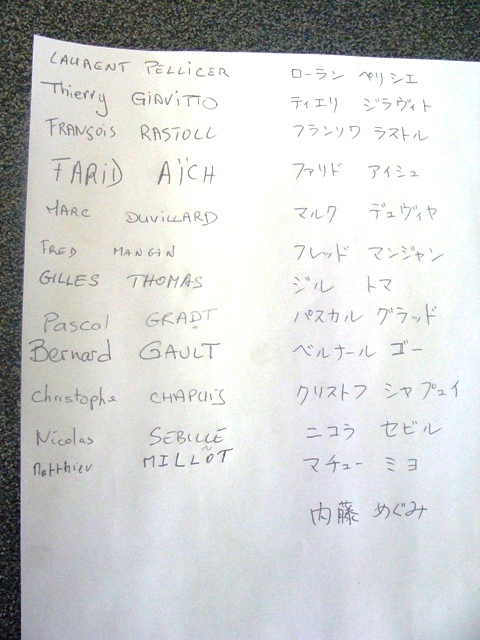 LAURENT PELLICER ローラン ペリシエ
Thierry GIRVITTO ティエリ ジラヴィト
FRANÇOIS RASTOLL フランソワ ラストル
FARID AÏCH ファリド アイシュ
MARC DUVILLARD マルク デュヴィヤ
FRED MANGIN フレッド マンジャン
GILLES THOMAS ジル トマ
Pascal GRADT パスカル グラッド
Bernard GAULT ベルナール ゴー
Christophe CHAPUIS クリストフ シャプュイ
Nicolas SEBILLE ニコラ セビル
Matthieu MILLOT マチュー ミヨ
内藤 めぐみ